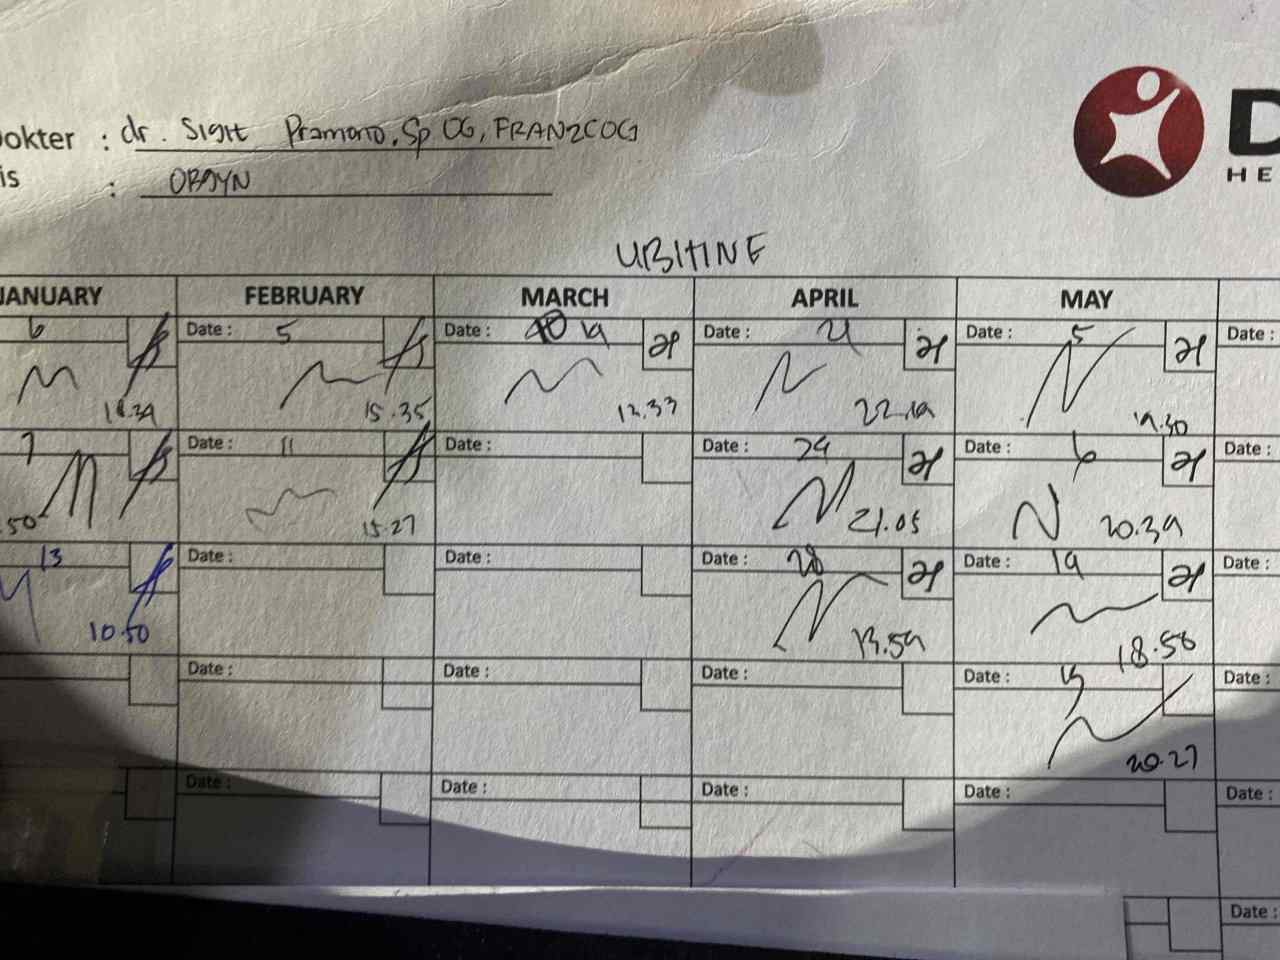 Dokter : dr. Sigit Pramono, Sp OG, FRANZCOG
is : OBGYN
D
HE
UBITINE
JANUARY FEBRUARY MARCH APRIL MAY
6 Date : 5 Date : 19 Date : 21 Date : 5 Date :
15.35 12.33 22.19 19.30
7 Date : 11 Date : Date : 29 Date : 6 Date :
.50 15.27 21.05 20.39
13 Date : Date : Date : 28 Date : 19 Date :
10.50 13.59 18.58
Date : Date : Date : Date : Date :
20.27
Date : Date : Date : Date : Date :
Date :